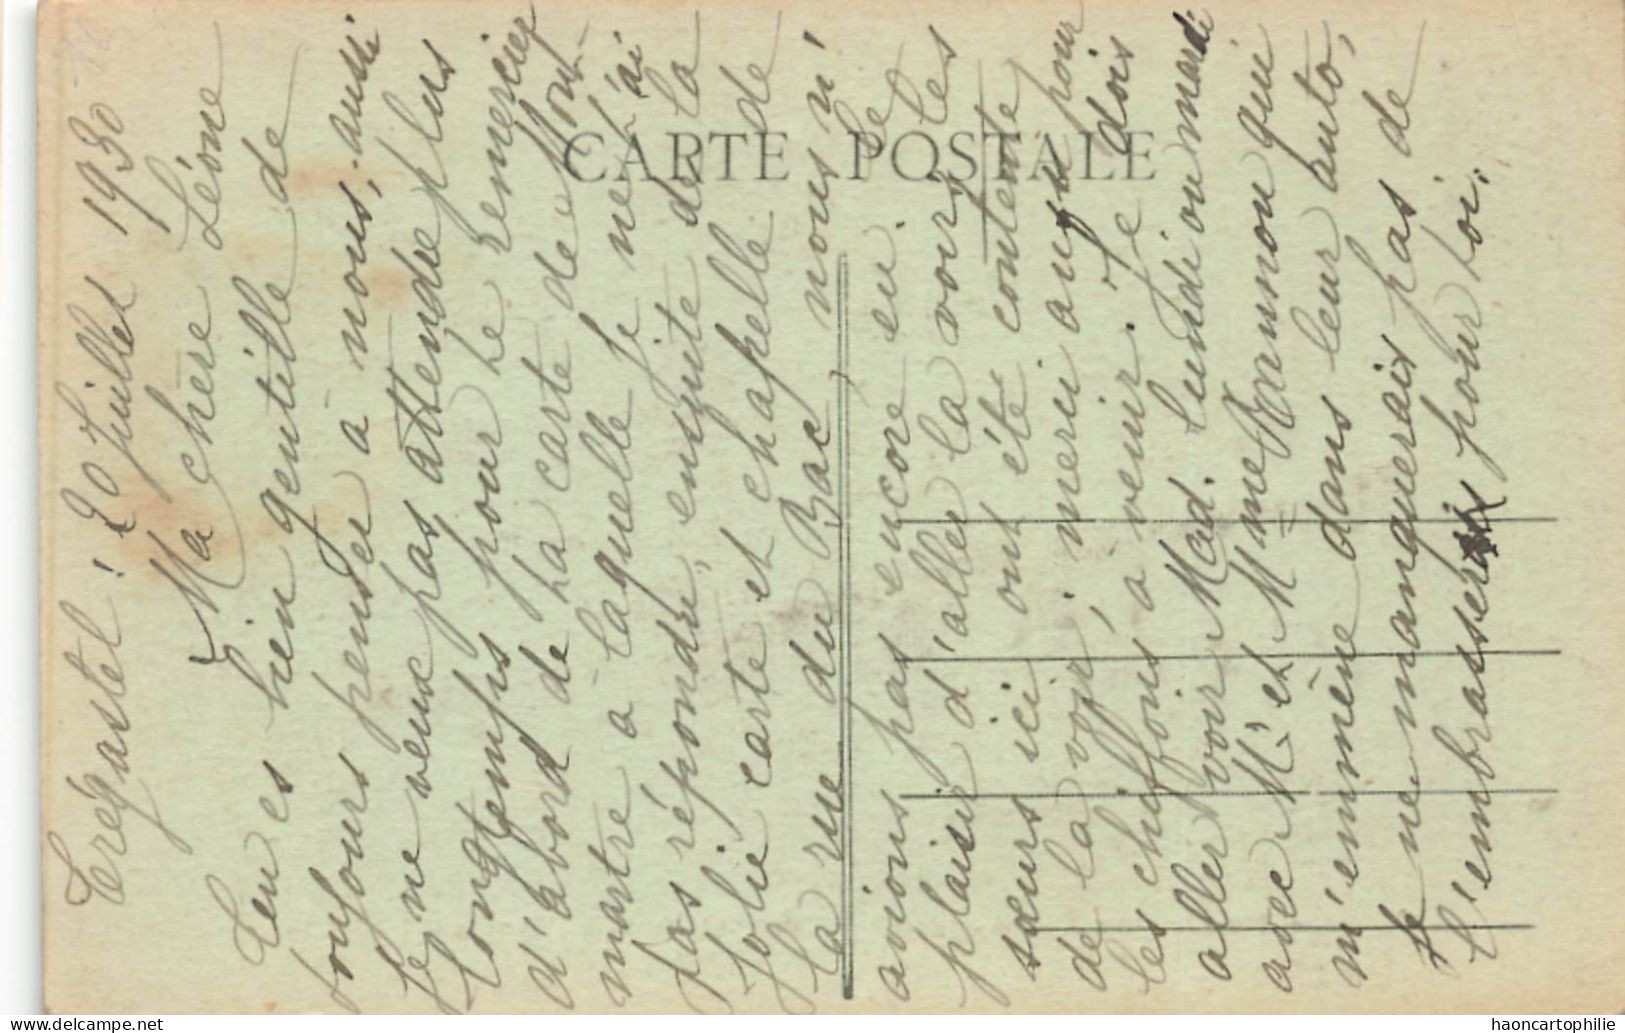 CARTE POSTALE
Trégastel ! 20 Juillet 1930
Ma chère Léone
Tu es bien gentille de
toujours penser à nous, aussi
je ne veux pas attendre plus
longtemps pour te remercier
d'abord de ta carte de Mont-
martre à laquelle je ne t'ai
pas répondu, ensuite de ta
jolie carte et chapelle de
la rue du Bac, nous n'
avions pas encore eu le
plaisir d'aller la voir, les
sœurs ici ont été contente
de la voir, merci aussi pour
les chiffons, à venir. Je dois
aller voir Mad. lundi ou mardi
avec Mr et Mme qui
m'emmène dans leur auto,
je ne manquerais pas de
l'embrasser pour toi.
www.delcampe.net
haoncartophilie